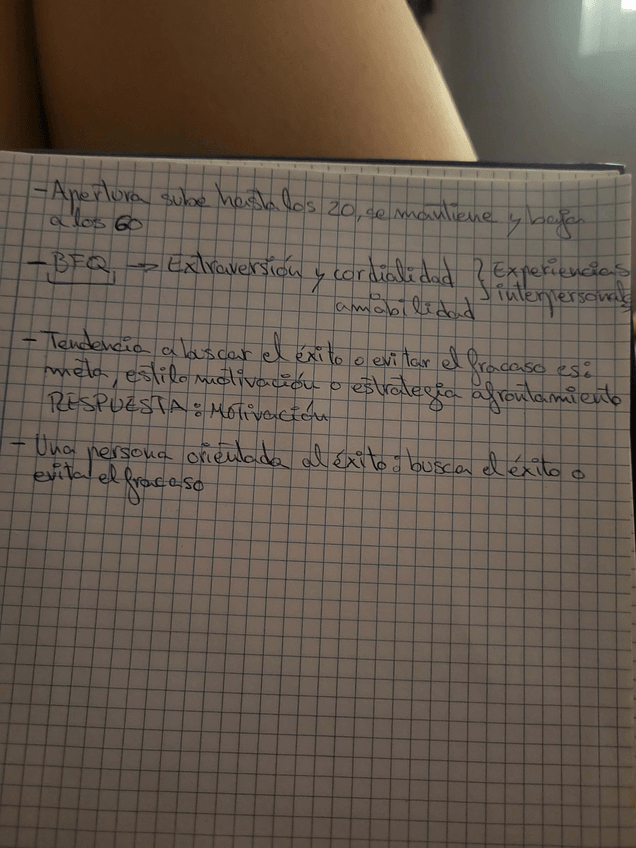 - Apertura sube hasta los 20, se mantiene y baja
a los 60
- BFQ → Extraversión y cordialidad } Experiencias
amabilidad interpersonales
- Tendencia a buscar el éxito o evitar el fracaso es:
meta, estilo motivación o estrategia afrontamiento
RESPUESTA: Motivación
- Una persona orientada al éxito: busca el éxito o
evita el fracaso